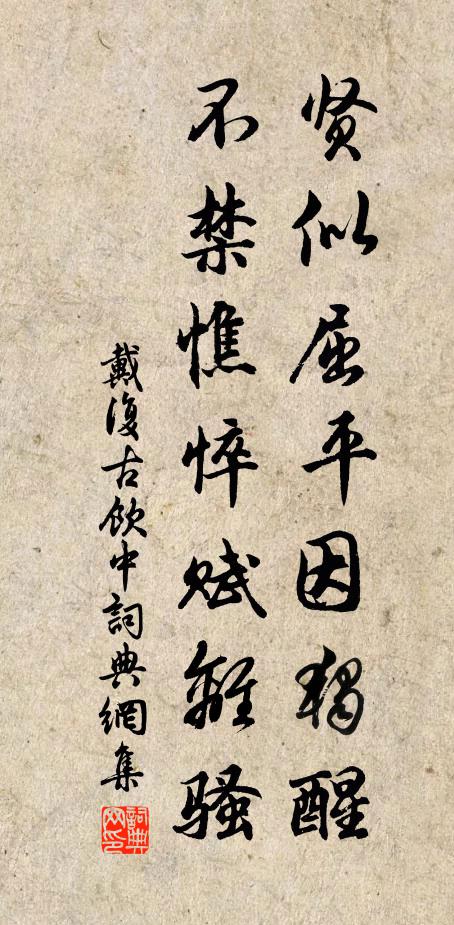 贤似屈平因獨醒
不禁憔悴赋離骚
戴復古飲中詞典網集
詞典網印